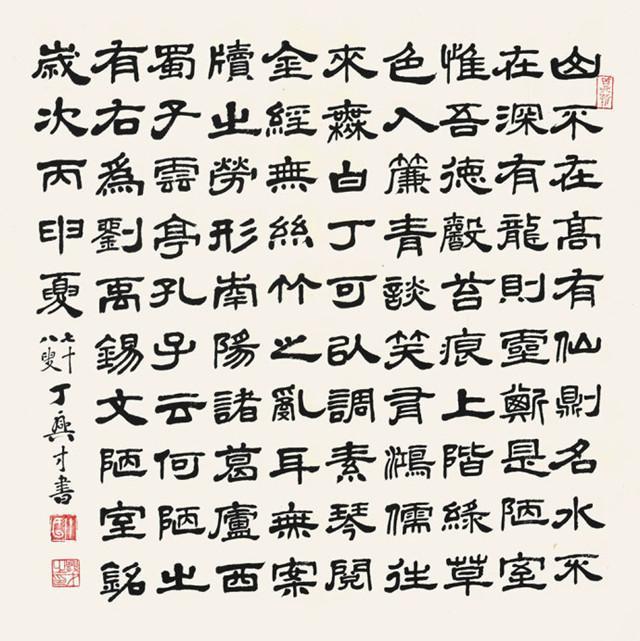 山不在高有仙則名水不
在深有龍則靈斯是陋室
惟吾德馨苔痕上階綠草
色入簾青談笑有鴻儒往
來無白丁可以調素琴閱
金經無絲竹之亂耳無案
牘之勞形南陽諸葛廬西
蜀子雲亭孔子云何陋之
有右為劉禹錫文陋室銘
歲次丙申夏七十八叟丁興才書